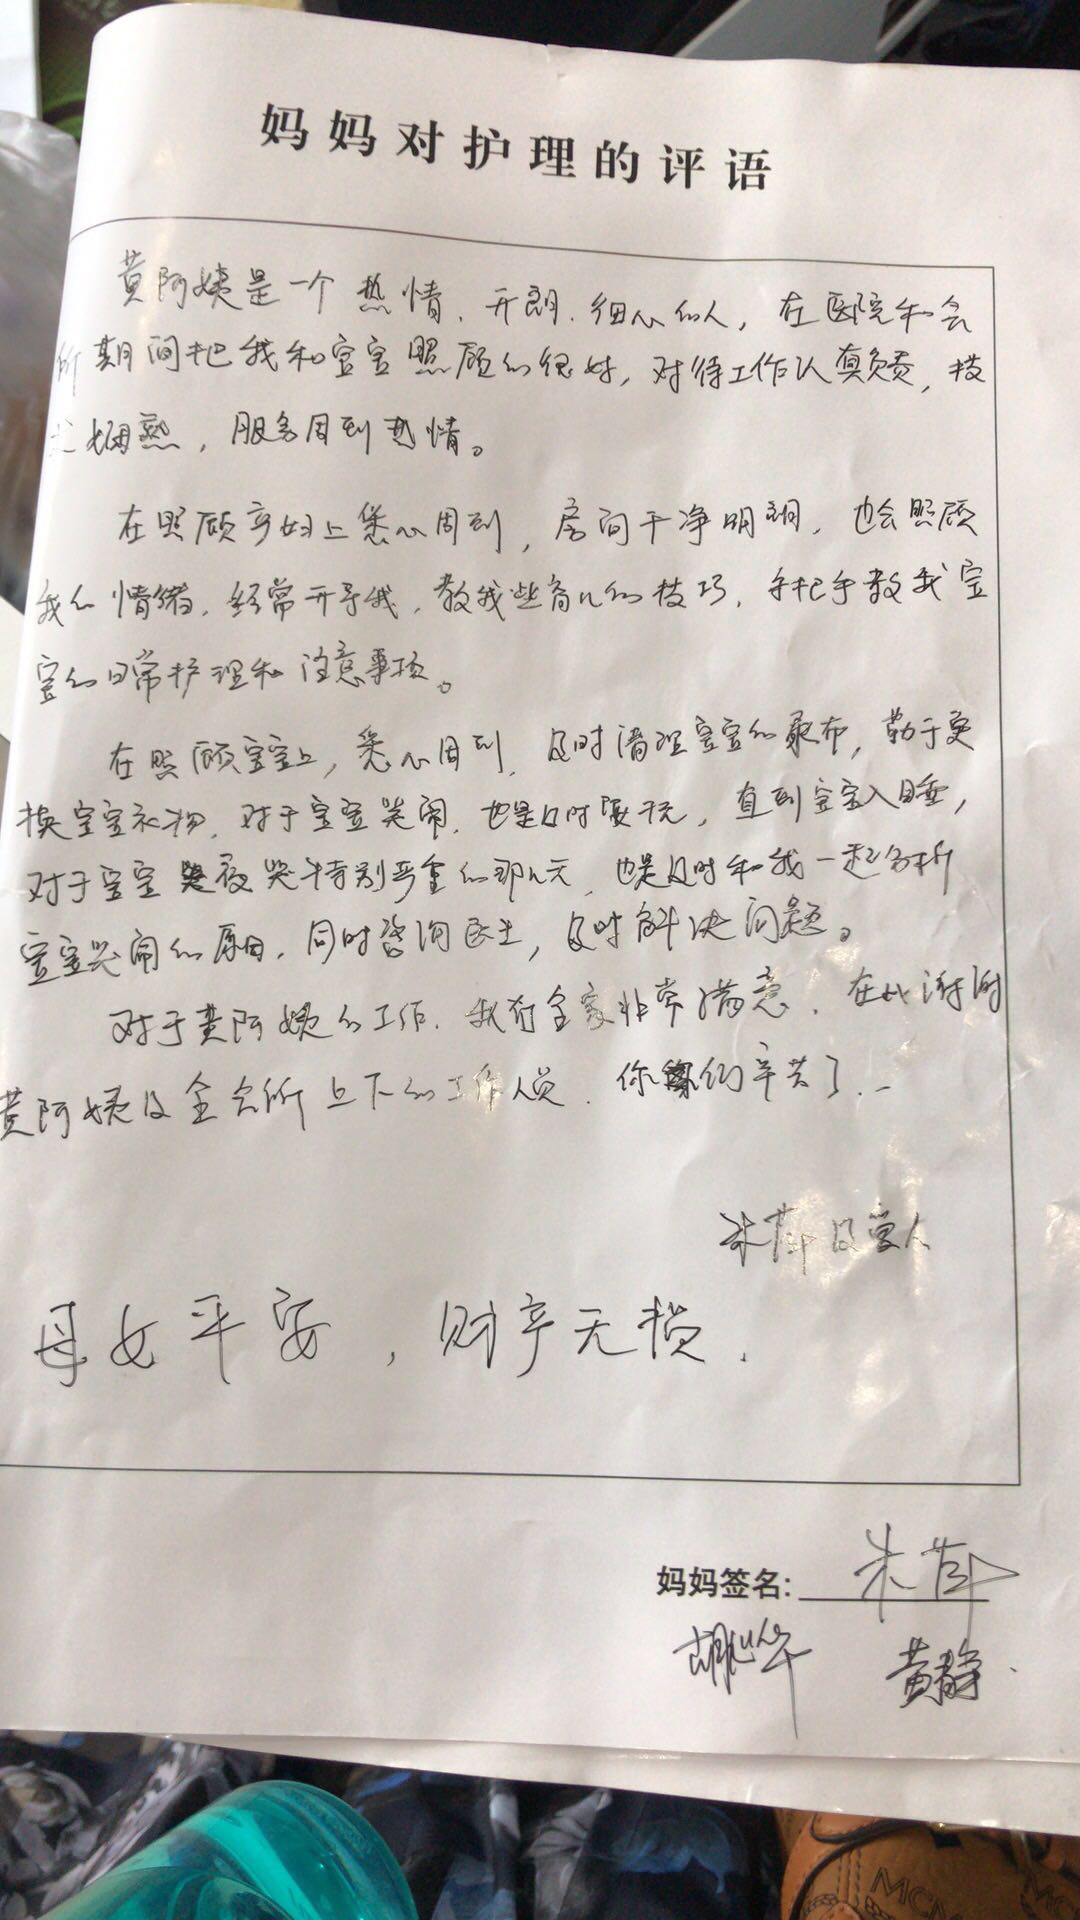 妈妈对护理的评语
黄阿姨是一个热情、开朗、细心的人，在医院和会
所期间把我和宝宝照顾的很好，对待工作认真负责，技
术娴熟，服务周到热情。
在照顾产妇上悉心周到，房间干净明朗，也会照顾
我的情绪，经常开导我，教我些育儿的技巧，手把手教我宝
宝的日常护理和注意事项。
在照顾宝宝上，悉心周到，及时清理宝宝的尿布，勤于更
换宝宝衣物，对于宝宝哭闹，也是及时安抚，直到宝宝入睡，
对于宝宝夜哭特别严重的那几天，也是及时和我一起分析
宝宝哭闹的原因，同时咨询医生，及时解决问题。
对于黄阿姨的工作，我有全家非常满意，在此谢谢
黄阿姨及全会所上下的工作人员，你们辛苦了..
朱 及家人
母女平安，财产无损.
妈妈签名: 朱
胡 黄静
MCM